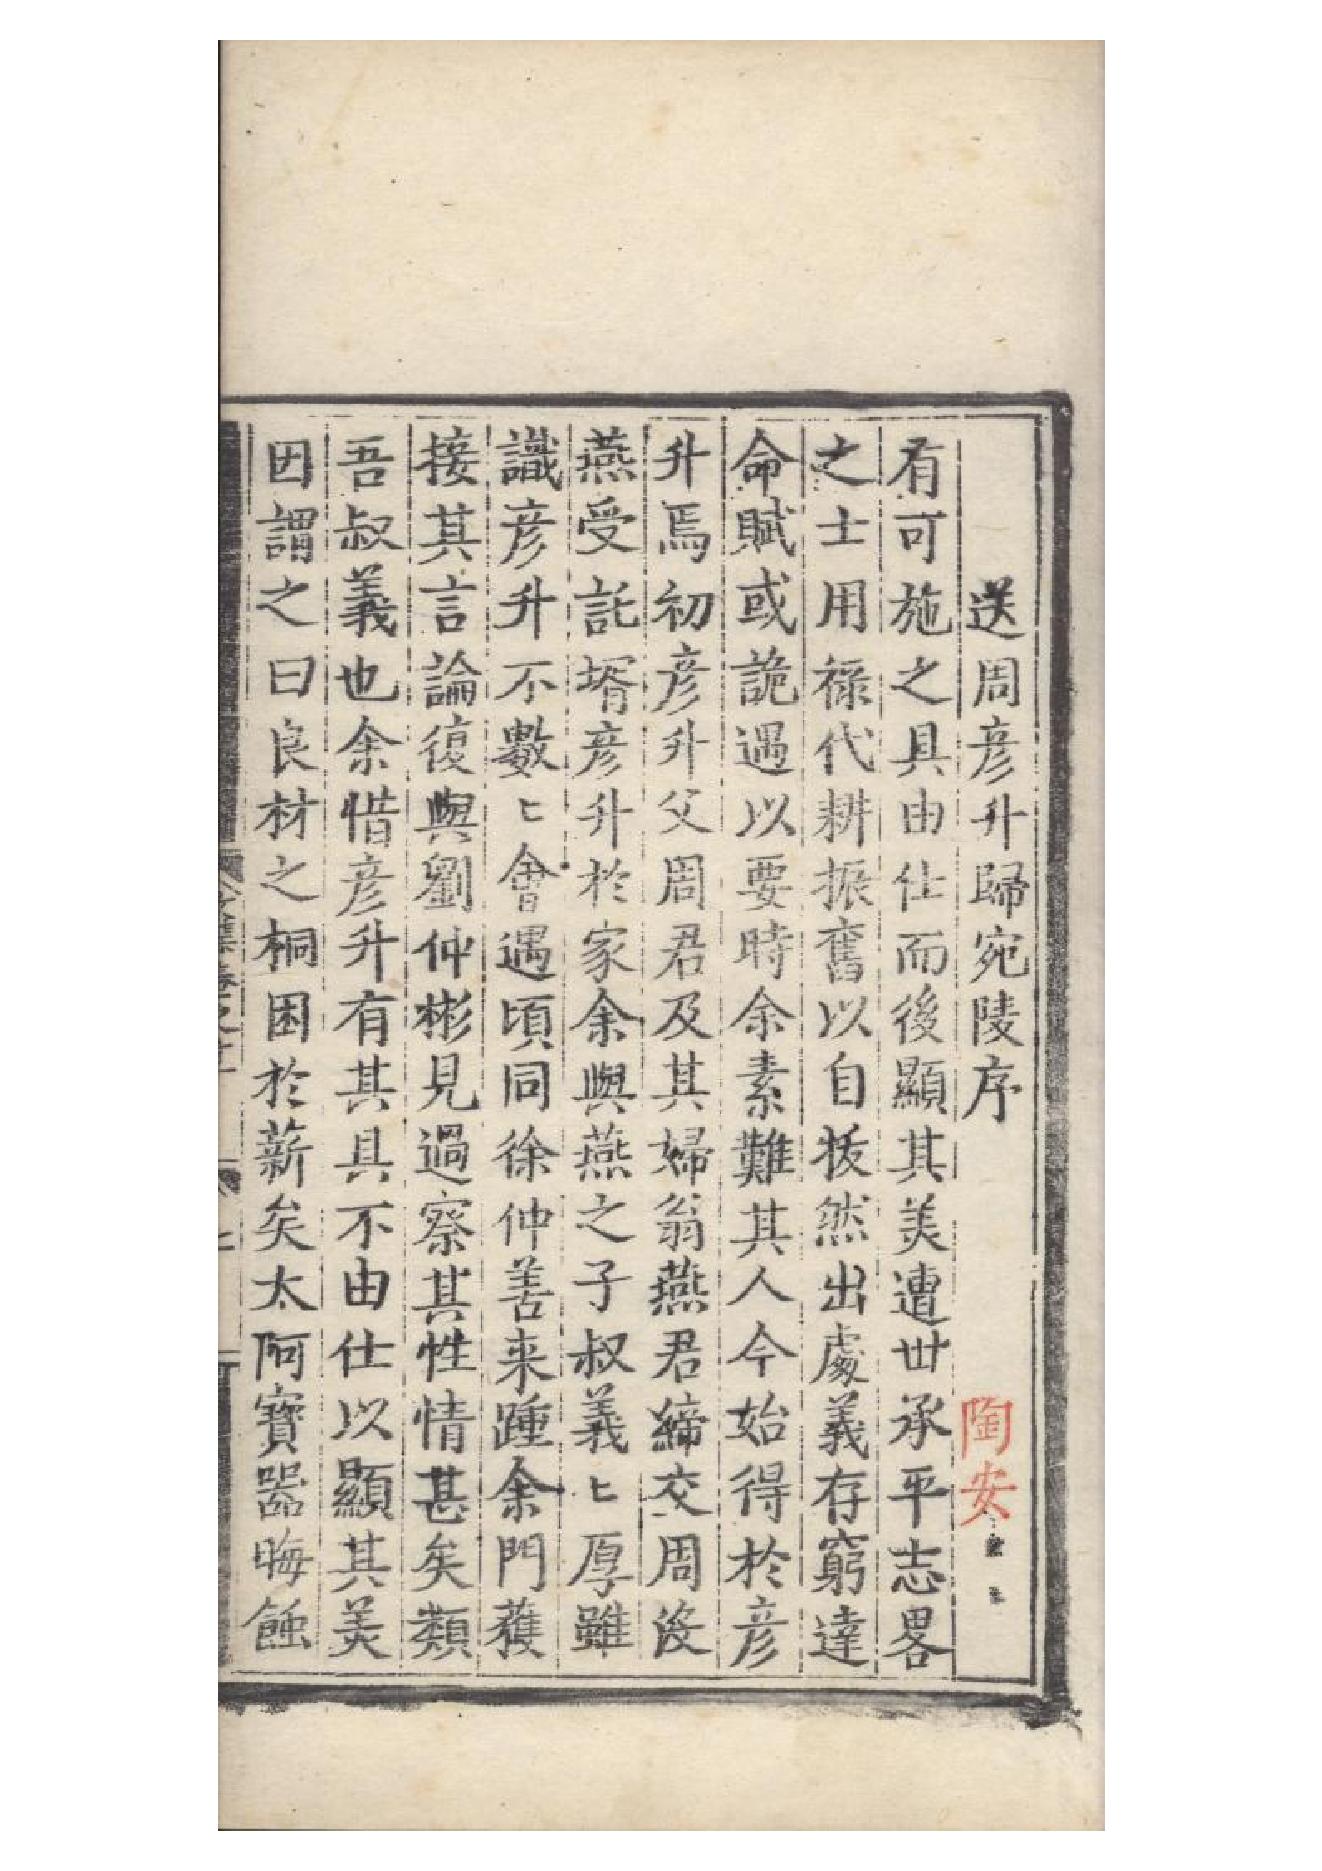 送周彦升歸宛陵序 陶安
有可施之具由仕而後顯其美遭丗承平志畧
之士用禄代耕振奮以自拔然出處義存窮達
命賦或詭遇以要時余素難其人今始得於彦
升焉初彦升父周君及其婦翁燕君締交周後
燕受託壻彦升於家余與燕之子叔義〻厚雖
識彦升不數〻會遇頃同徐仲善来踵余門獲
接其言論復與劉仲彬見過察其性情甚矣類
吾叔義也余惜彦升有其具不由仕以顯其美
因謂之曰良材之桐困於薪矣太阿寶器晦蝕